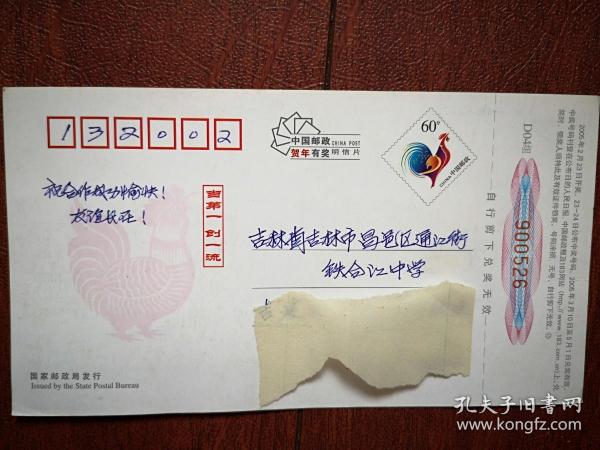 132002
中国邮政 CHINA POST
贺年有奖 明信片
60分
中国邮政 CHINA
祝合作成功愉快！
友谊长存！
吉第一创一流
吉林省吉林市昌邑区通江街
铁合江中学
国家邮政局发行
Issued by the State Postal Bureau
自行剪下兑奖无效
D04组
900526
孔夫子旧书网
www.kongfz.com